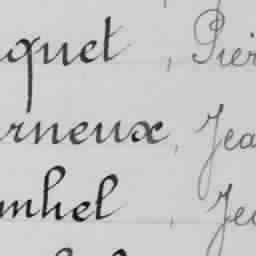 quet, Pier
rneux, Jea
mhel, Jea